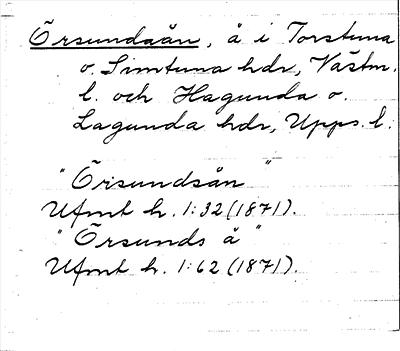 Örsundaån, å i Torstuna
o. Simtuna hdr, Västm.
l. och Hagunda o.
Lagunda hdr, Upps. l.
"Örsundsån"
Ufmt h. 1:32 (1871).
"Örsunds å"
Ufmt h. 1:62 (1871).